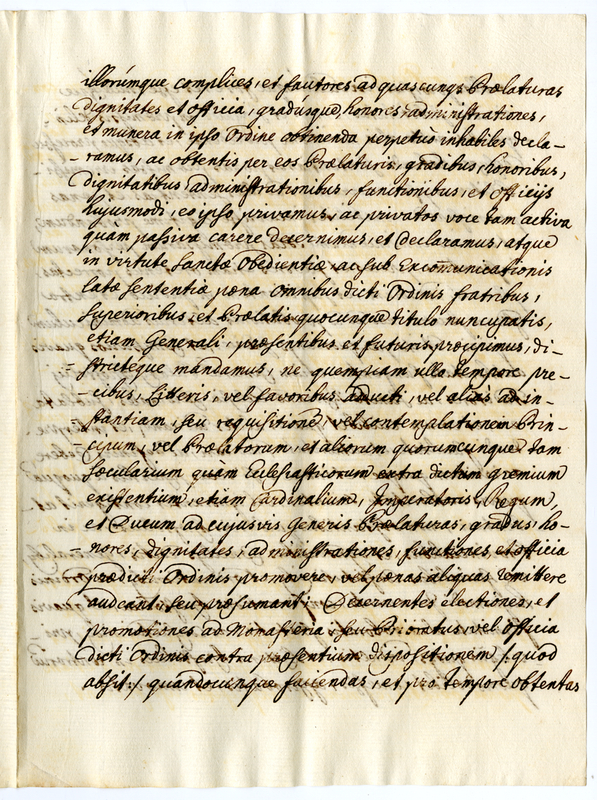 illorúmque complices, et fautores ad quascunqs Prælaturas
dignitates et officia, gradúsque, honores, administrationes,
et munera in ipso Ordine obtinenda perpetuo inhabiles decla-
-ramus, ac obtentis per eos Prælaturis, gradibus, honoribus,
dignitatibus, administrationibus, functionibus, et officijs
hujusmodi, eo ipso privamus, ac privatos voce tam activa
quàm passiva carere decernimus, et declaramus, atque
in virtute Sanctæ Obedientiæ, ac sub Excom̄unicationis
latæ sententiæ pœna omnibus dicti Ordinis fratribus,
Superioribus, et Prælatis quocunque titulo nuncupatis,
etiam Generali, præsentibus et futuris præcipimus, di-
-stricteque mandamus, ne quempiam ullo tempore pre-
-cibus, Litteris, vel favoribus adjuti, vel aliàs ad in-
-stantiam, seu requisitione, vel contemplationem Prin-
-cipum, vel Prælatorum, et aliorum quorumcunque tam
Sæcularium quam Ecclesiasticorum extra dictum gremium
existentium, etiam Cardinalium, Imperatoris, Regum,
et Ducum ad cujusvis Generis Prælaturas, gradus, ho-
-nores, dignitates, administrationes, functiones, et officia
prædicti Ordinis promovere, vel pœnas aliquas remittere
audeant, seu præsumant; Decernentes electiones, et
promotiones ad Monasteria, seu Prioratus, vel Officia
dicti Ordinis contra præsentium dispositionem /: quod
absit :/ quandocunque faciendas, et pro tempore obtentas